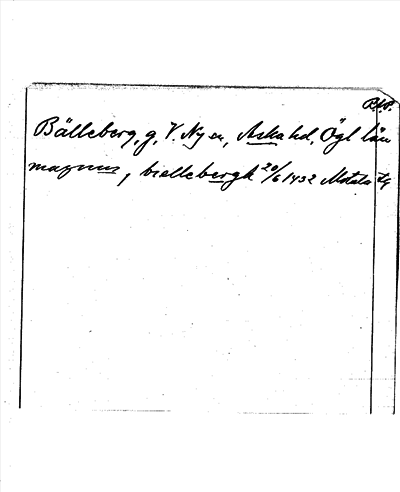 Bälleberg, g, V. Ny sn, Aska hd, Ögl län
magnus, biellebergk 20/6 1432 Motala